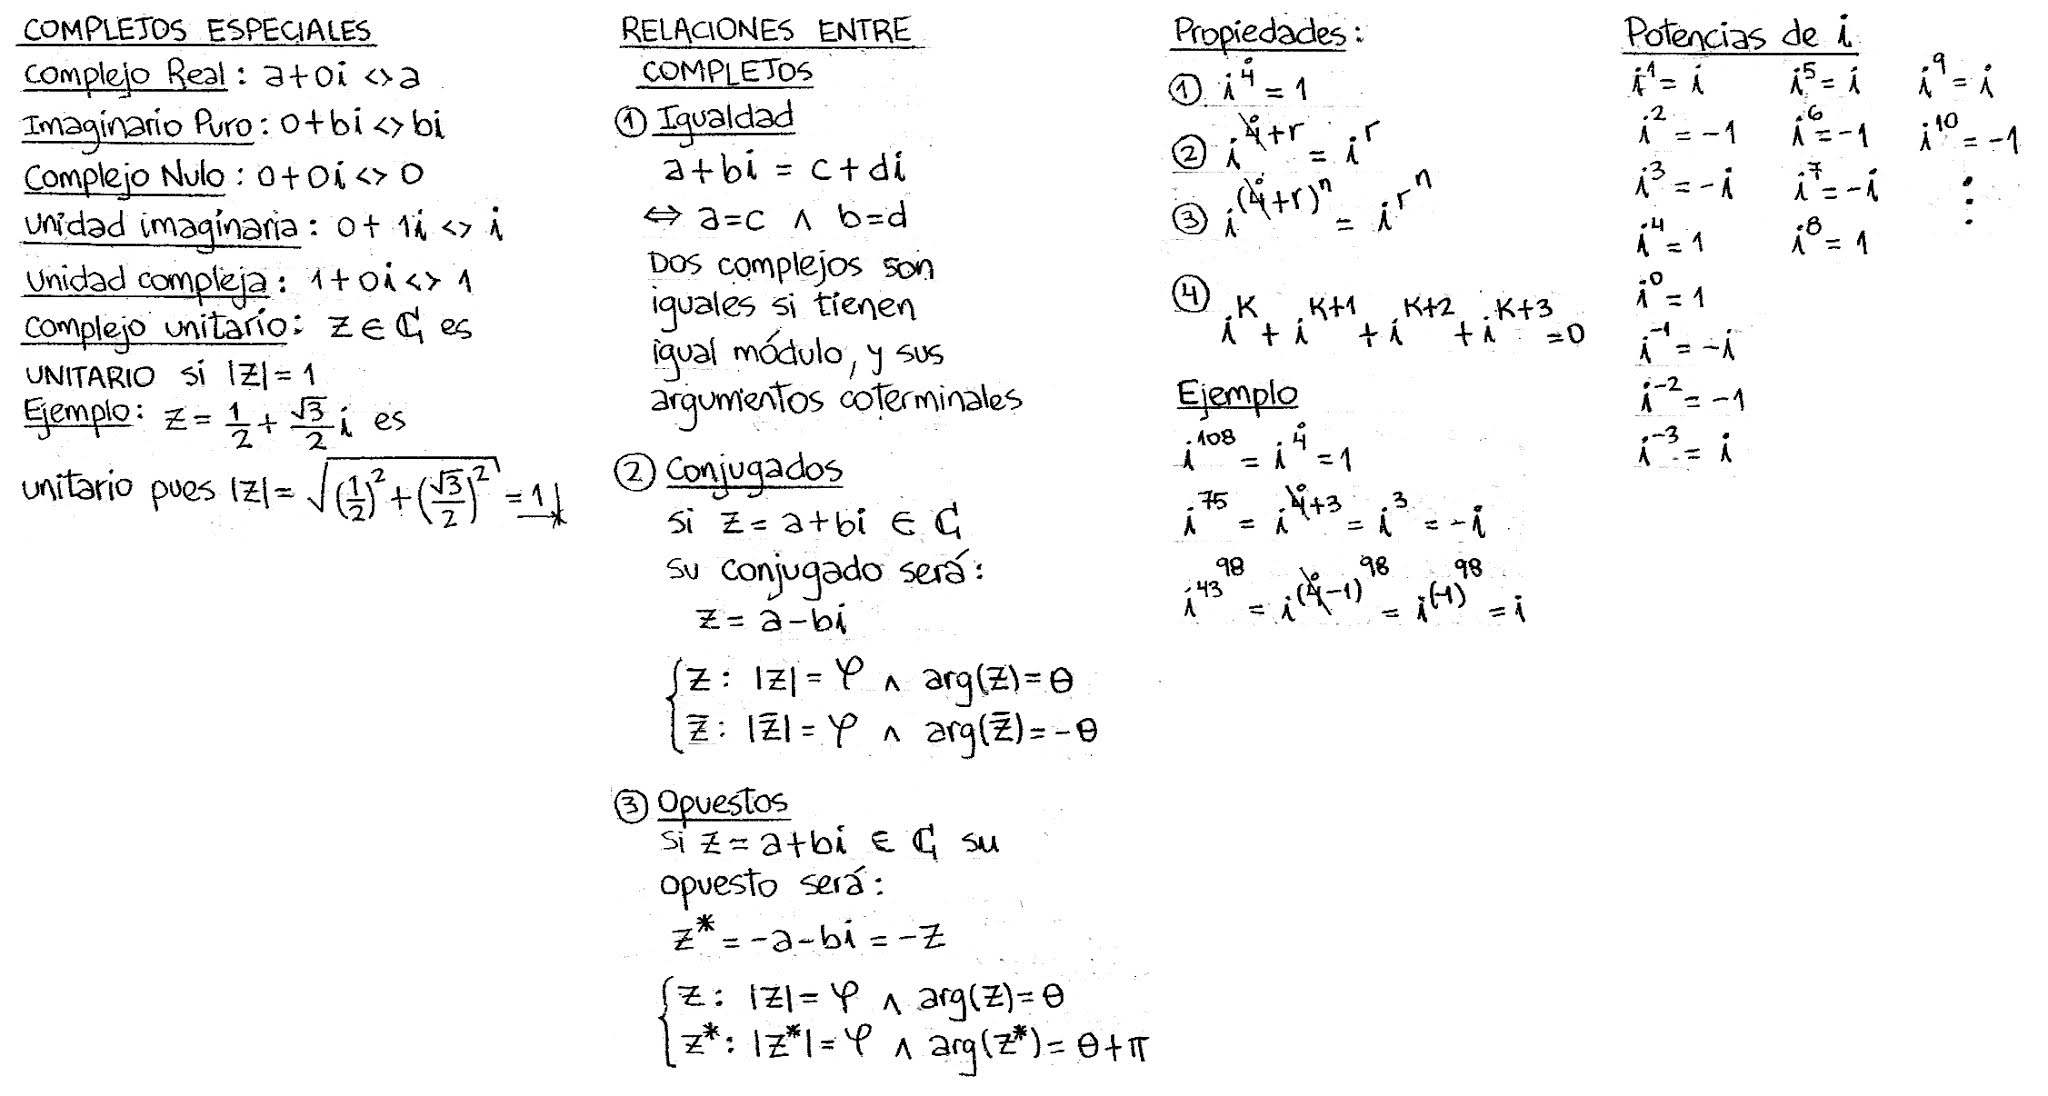 COMPLEJOS ESPECIALES
Complejo Real: a+0i <> a
Imaginario Puro: 0+bi <> bi
Complejo Nulo: 0+0i <> 0
Unidad imaginaria: 0+1i <> i
Unidad compleja: 1+0i <> 1
Complejo unitario: Z∈ℂ es
UNITARIO si |Z|=1
Ejemplo: Z = 1/2 + √3/2 i es
unitario pues |Z| = √((1/2)²+(√3/2)²) = 1
RELACIONES ENTRE
COMPLEJOS
① Igualdad
a+bi = c+di
⇔ a=c ∧ b=d
Dos complejos son
iguales si tienen
igual módulo, y sus
argumentos coterminales
② Conjugados
Si Z = a+bi ∈ ℂ
su conjugado será:
Z = a-bi
Z: |Z| = φ ∧ arg(Z) = θ
Z̄: |Z̄| = φ ∧ arg(Z̄) = -θ
③ Opuestos
Si Z = a+bi ∈ ℂ su
opuesto será:
Z* = -a-bi = -Z
Z: |Z| = φ ∧ arg(Z) = θ
Z*: |Z*| = φ ∧ arg(Z*) = θ+π
Propiedades:
① i^4̊ = 1
② i^(4̊+r) = i^r
③ i^((4̊+r)^n) = i^(r^n)
④ i^K + i^(K+1) + i^(K+2) + i^(K+3) = 0
Ejemplo
i^108 = i^4̊ = 1
i^75 = i^(4̊+3) = i^3 = -i
i^(43^98) = i^((4̊-1)^98) = i^((-1)^98) = i
Potencias de i
i^1 = i i^5 = i i^9 = i
i^2 = -1 i^6 = -1 i^10 = -1
i^3 = -i i^7 = -i ⋮
i^4 = 1 i^8 = 1
i^0 = 1
i^-1 = -i
i^-2 = -1
i^-3 = i